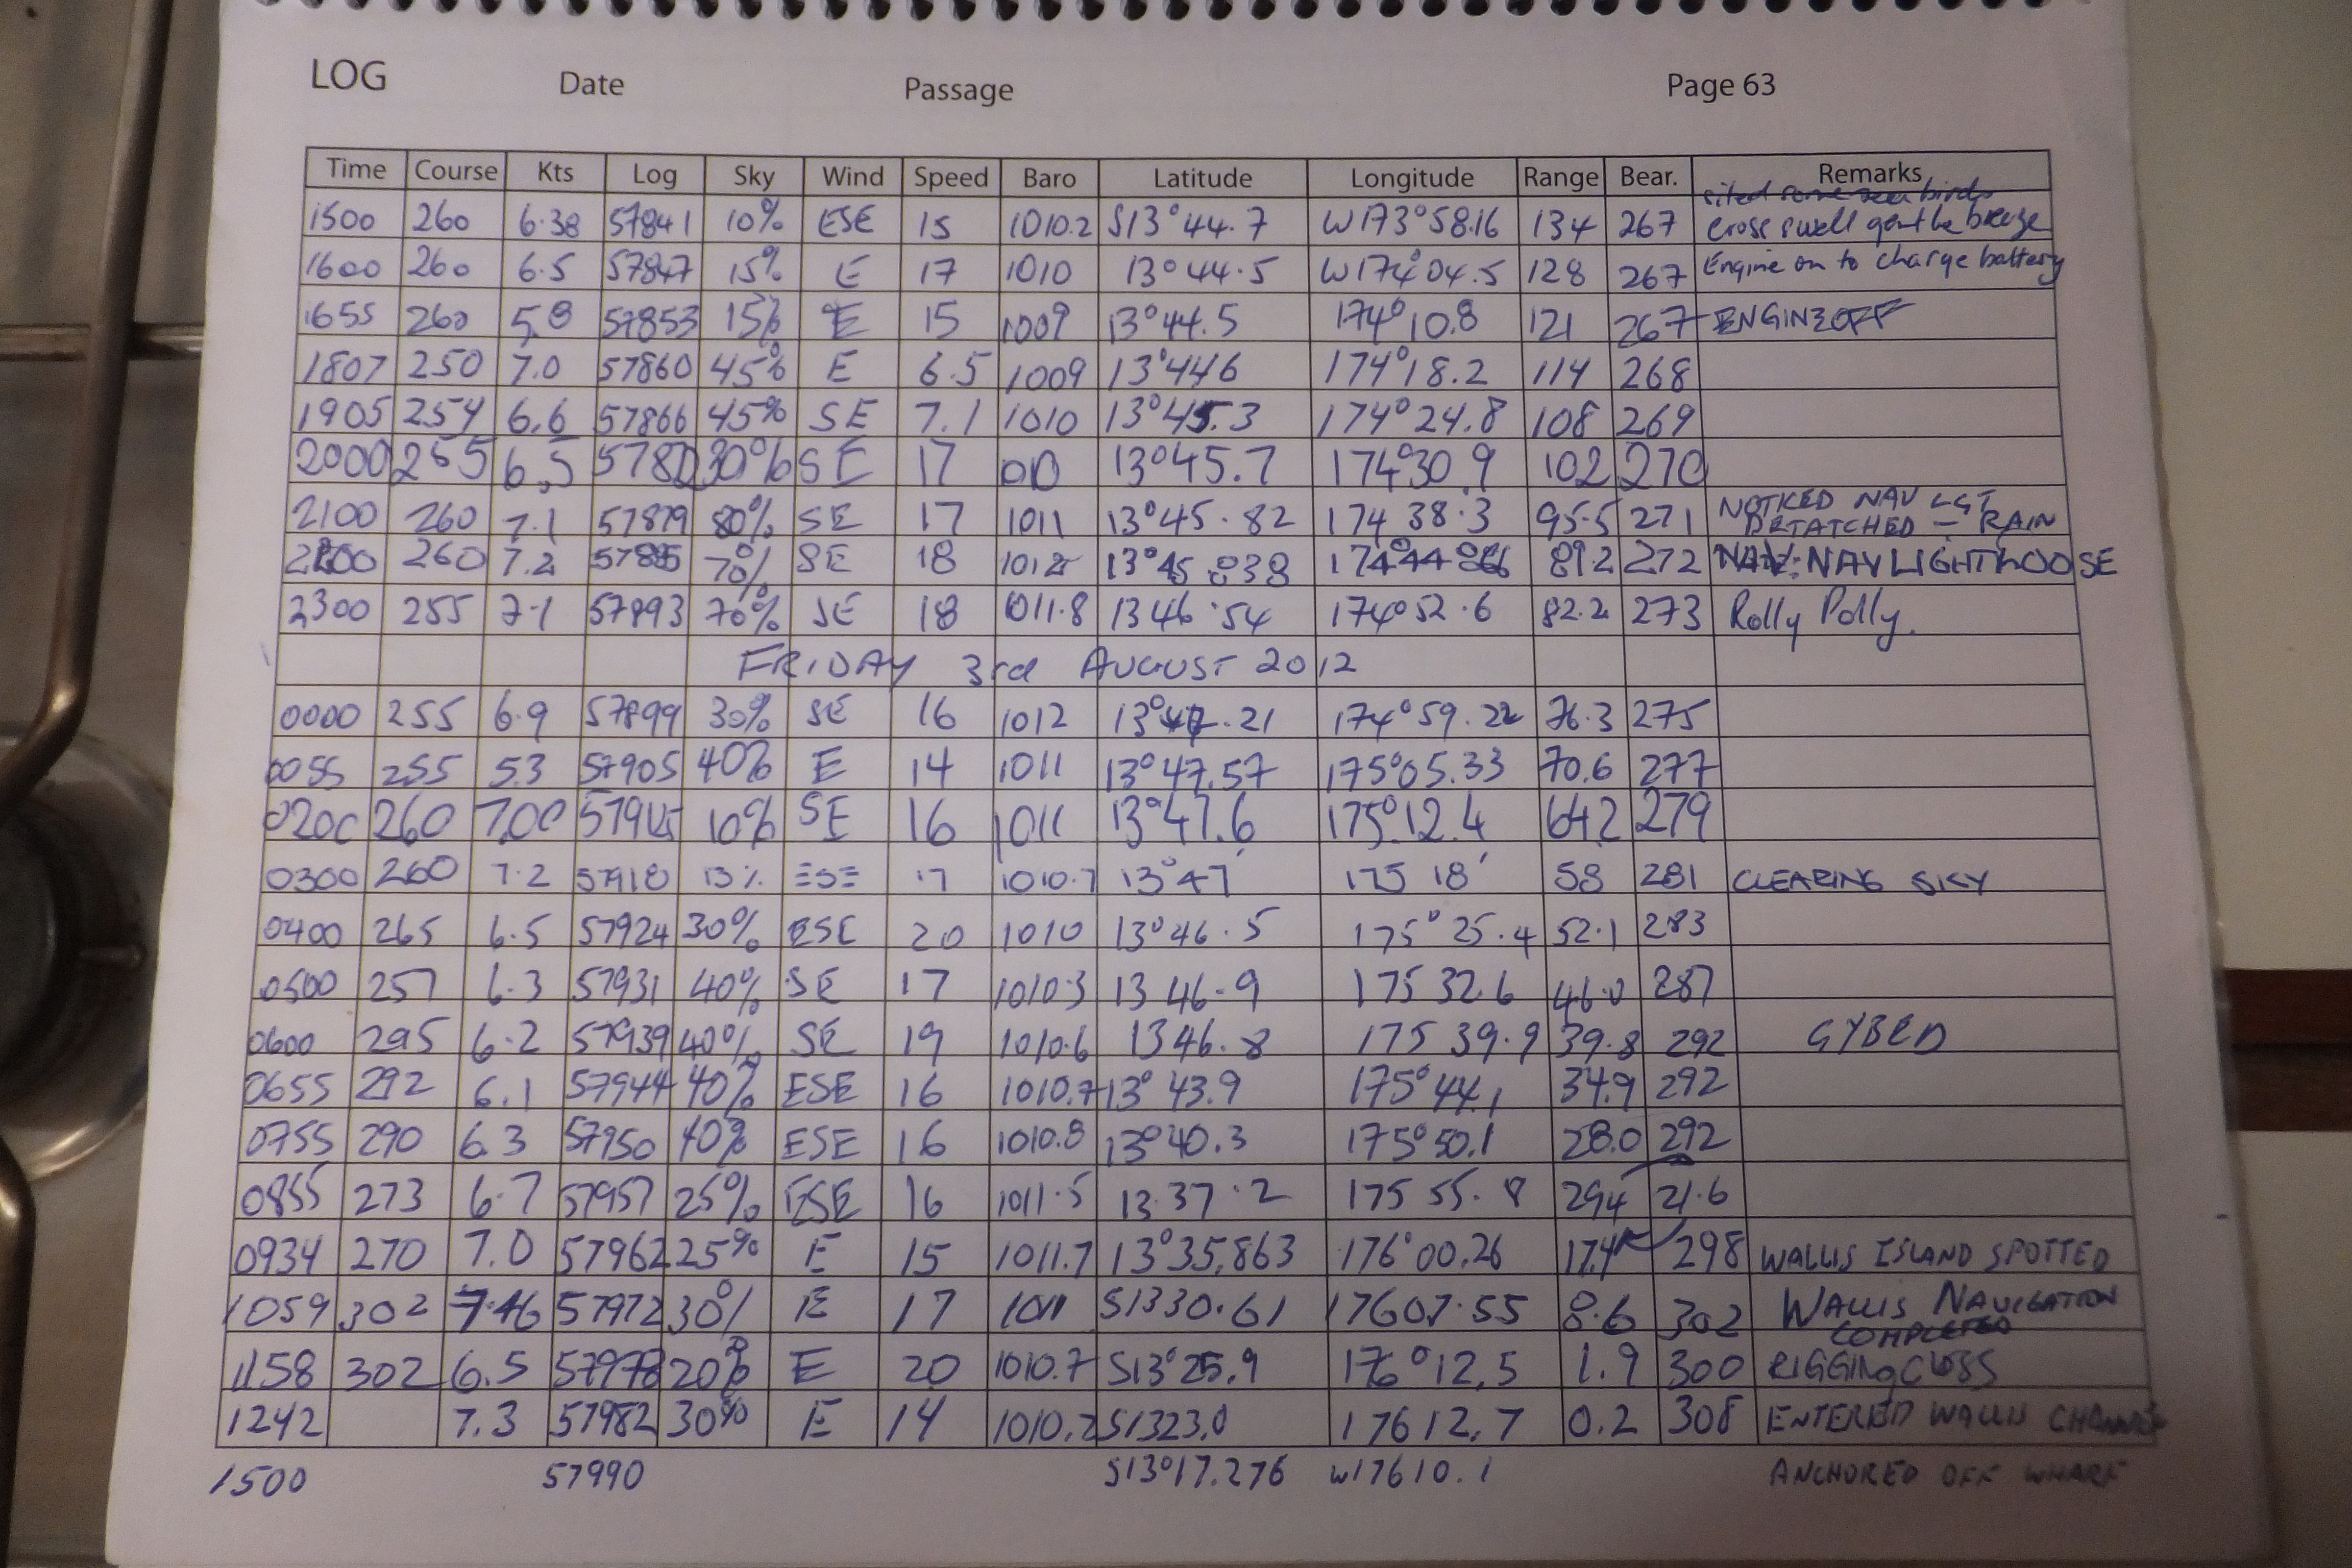 LOG Date Passage Page 63
Time Course Kts Log Sky Wind Speed Baro Latitude Longitude Range Bear. Remarks
sited some birds
1500 260 6.38 57841 10% ESE 15 1010.2 S13°44.7 W173°58.16 134 267 cross swell gentle breeze
1600 260 6.5 57847 15% E 17 1010 13°44.5 W174°04.5 128 267 Engine on to charge battery
1655 260 5.8 57853 15% E 15 1009 13°44.5 174°10.8 121 267 ENGINE OFF
1807 250 7.0 57860 45% E 6.5 1009 13°446 174°18.2 114 268
1905 254 6.6 57866 45% SE 7.1 1010 13°45.3 174°24.8 108 269
2000 265 6.5 30% SE 17 13°45.7 174°30.9 102 270
NOTICED NAV LGT
2100 260 7.1 57879 80% SE 17 1011 13°45.82 174 38.3 95.5 271 DETATCHED - RAIN
2200 260 7.2 57885 70% SE 18 1012 13°45.838 89.2 272 NAV LIGHT LOOSE
2300 255 7.1 57893 70% SE 18 1011.8 13 46.54 174°52.6 82.2 273 Rolly Polly.
FRIDAY 3rd AUGUST 2012
0000 255 6.9 57899 30% SE 16 1012 13°47.21 174°59.22 76.3 275
0055 255 5.3 57905 40% E 14 1011 13°47.57 175°05.33 70.6 277
0200 260 7.00 10% SE 16 1011 13°47.6 175°12.4 64.2 279
0300 260 7.2 57918 13% ESE 17 1010.7 13°47' 175 18' 58 281 CLEARING SKY
0400 265 6.5 57924 30% ESE 20 1010 13°46.5 175°25.4 52.1 283
0500 257 6.3 57931 40% SE 17 1010.3 13 46.9 175 32.6 46.0 287
0600 295 6.2 57939 40% SE 19 1010.6 13 46.8 175 39.9 39.8 292 GYBED
0655 292 6.1 57944 40% ESE 16 1010.7 13°43.9 175°44.1 34.9 292
0755 290 6.3 57950 40% ESE 16 1010.8 13°40.3 175°50.1 28.0 292
0855 273 6.7 57957 25% ESE 16 1011.5 13.37.2 175 55.8 294 21.6
0934 270 7.0 57962 25% E 15 1011.7 13°35,863 176°00.26 17.4 298 WALLIS ISLAND SPOTTED
1059 302 7.46 57972 30% E 17 1011 S1330.61 17607.55 8.6 302 WALLIS NAVIGATION
COMPLETED
1158 302 6.5 57978 20% E 20 1010.7 S13°25.9 176°12,5 1.9 300 RIGGING
1242 7.3 57982 30% E 14 1010.2 S1323.0 17612.7 0.2 308 ENTERED WALLIS CHANNEL
1500 57990 S13°17.276 W17610.1 ANCHORED OFF WHARF